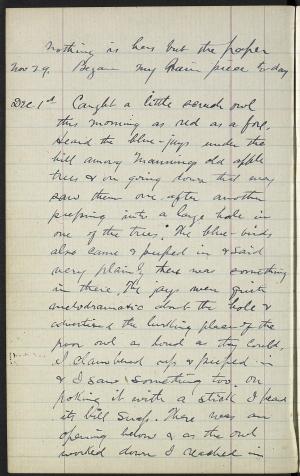 nothing is hers but the paper
Nov 29. Began my Rain piece to-day
Dec. 1st Caught a little screech owl
this morning as red as a fox.
Heard the blue-jays under the
hill among Mannings old apple
trees & on going down that way
saw them one after another
peeping into a large hole in
one of the trees. The blue-birds
also came & peeped in & said
very plainly there was something
in there. The jays were quite
melodramatic about the hole &
advertised the lurking place of the
poor owl as loud as they could.
I clambered up & peeped in
& I saw something too. On
poking it with a stick I heard
its bill snap. There was an
opening below & as the owl
worked down I reached in